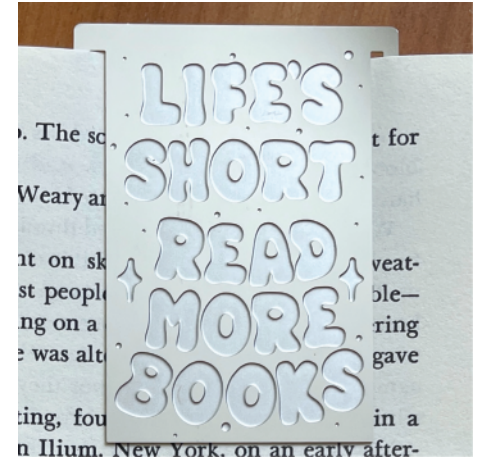 LIFE'S
SHORT
READ
MORE
BOOKS
. The
t for
Weary
nt on
weat-
st people
ble—
ing on a
ring
e was
gave
ting,
in a
n Ilium, New York, on an early after-